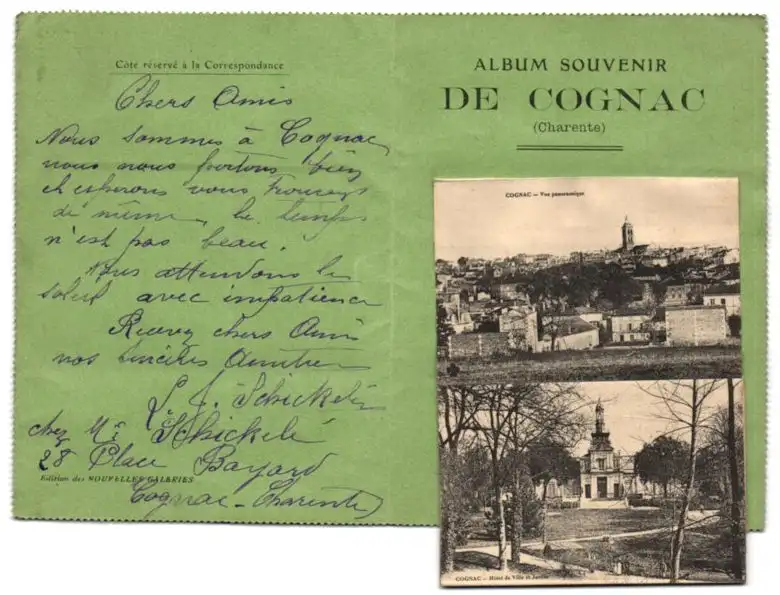 Côté réservé à la Correspondance
Chers Amis
Nous sommes à Cognac
nous nous portons bien
et esperons vous trouverez
de même, le temps
n'est pas beau.
Nous attendons le
soleil avec impatience
Recevez chers Amis
nos sincères Amitiés
Schickelé
chez Mr Schickelé
28 Place Bayard
Edition des NOUVELLES GALERIES
Cognac-Charente
ALBUM SOUVENIR
DE COGNAC
(Charente)
COGNAC — Vue panoramique
COGNAC — Hôtel de Ville et Jardin